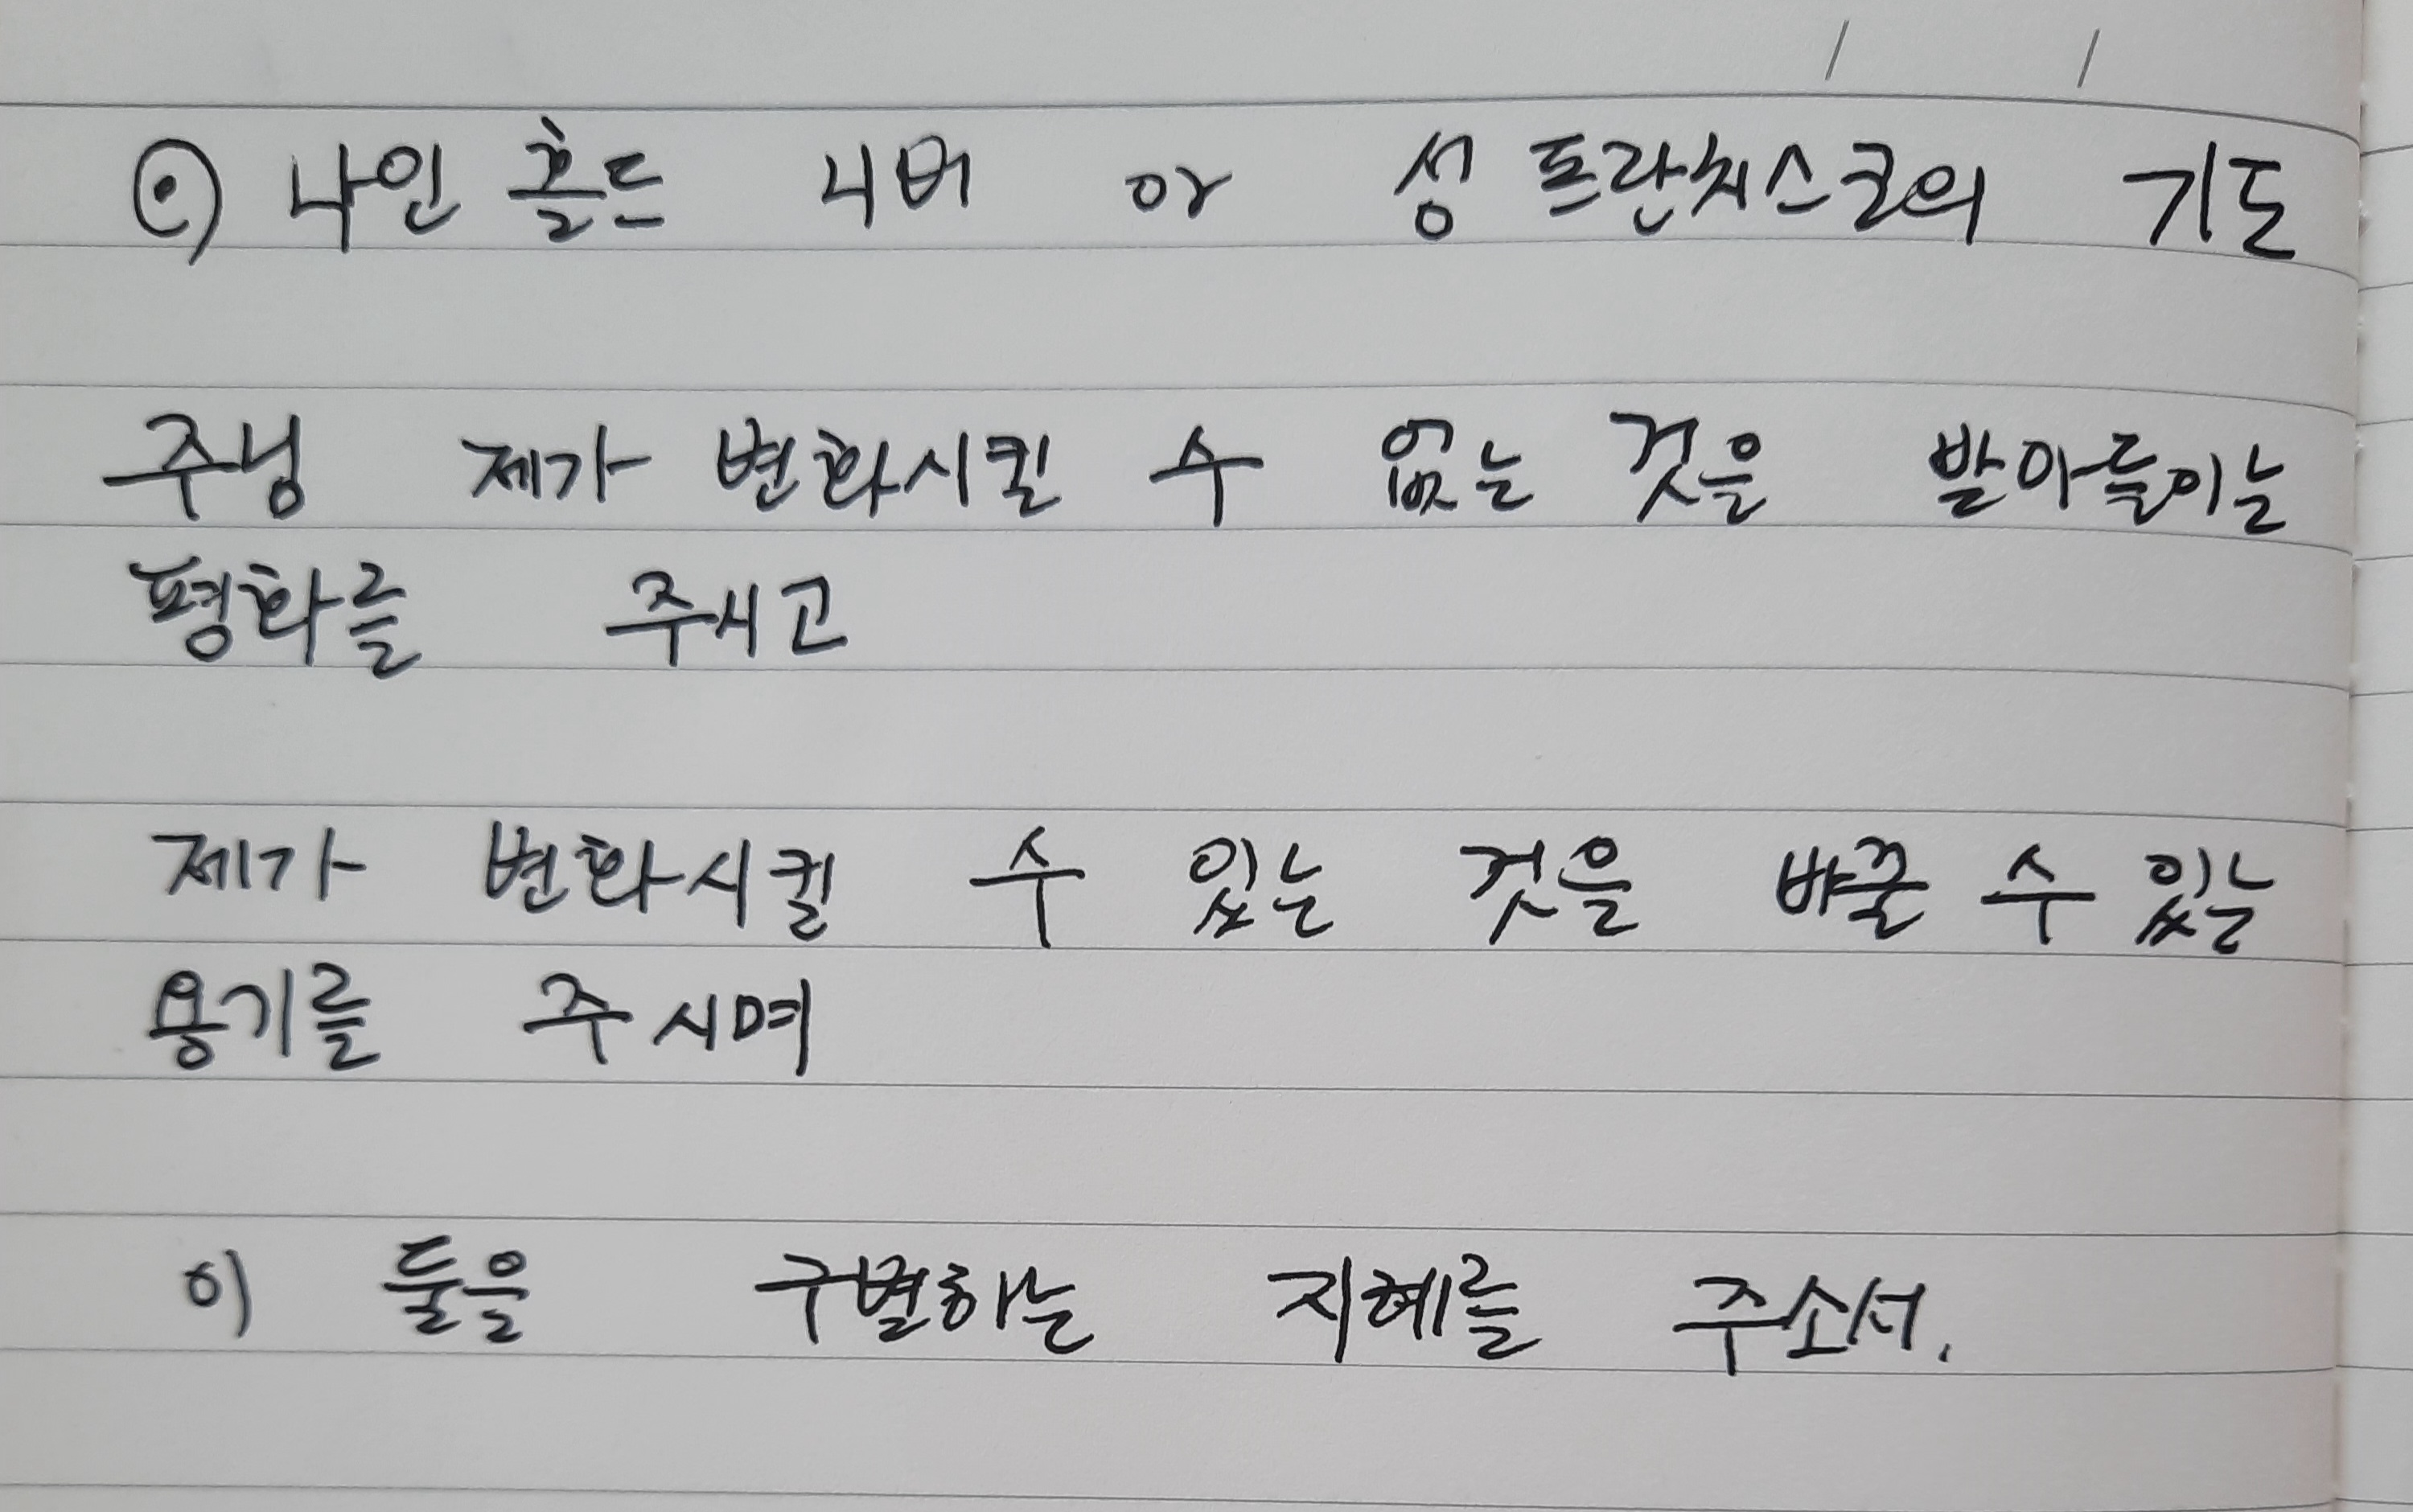 ⊙ 나인 홀드 니버 or 성 프란치스코의 기도
주님 제가 변화시킬 수 없는 것을 받아들이는
평화를 주시고
제가 변화시킬 수 있는 것을 바꿀 수 있는
용기를 주시며
이 둘을 구별하는 지혜를 주소서.